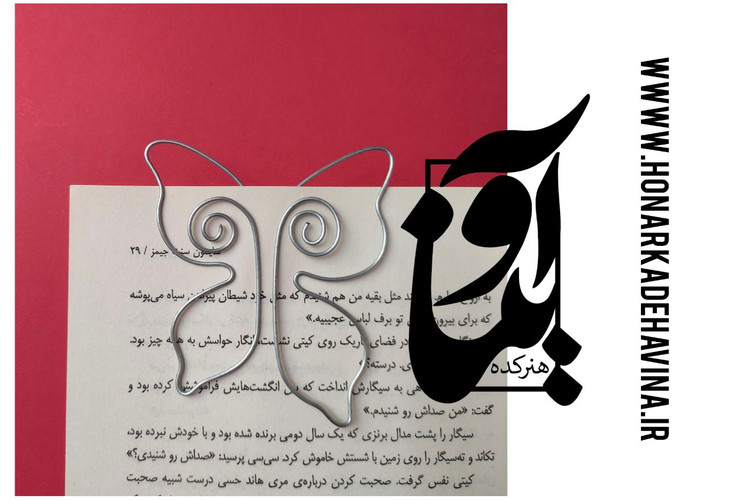 WWW.HONARKADEHAVINA.IR
آوینا
هنرکده
سنت جیمز / ۲۹
مثل بقیه من هم شنیدم که مثل خود شیطان سیاه می‌پوشه
که برای تو برف لباس عجیبیه.»
در فضای تاریک روی کیتی نشست، انگار حواسش به همه چیز بود.
درسته؟
به سیگارش انداخت که بین انگشت‌هایش فراموشش کرده بود و
گفت: «من صداش رو شنیدم.»
سیگار را پشت مدال برنزی که یک سال دومی برنده شده بود و با خودش نبرده بود،
تکاند و ته‌سیگار را روی زمین با شستش خاموش کرد. سی‌سی پرسید: «صداش رو شنیدی؟»
کیتی نفس گرفت. صحبت کردن درباره‌ی مری هاند حسی درست شبیه صحبت